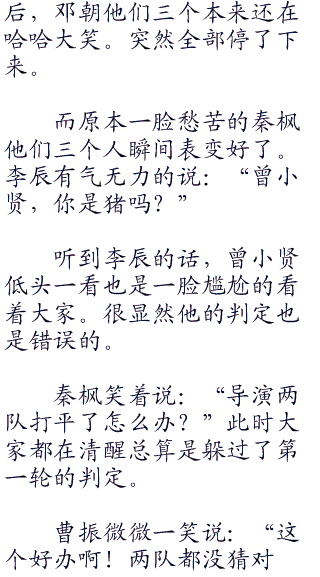 后，邓朝他们三个本来还在
哈哈大笑。突然全部停了下
来。
而原本一脸愁苦的秦枫
他们三个人瞬间表变好了。
李辰有气无力的说：“曾小
贤，你是猪吗？”
听到李辰的话，曾小贤
低头一看也是一脸尴尬的看
着大家。很显然他的判定也
是错误的。
秦枫笑着说：“导演两
队打平了怎么办？”此时大
家都在清醒总算是躲过了第
一轮的判定。
曹振微微一笑说：“这
个好办啊！两队都没猜对